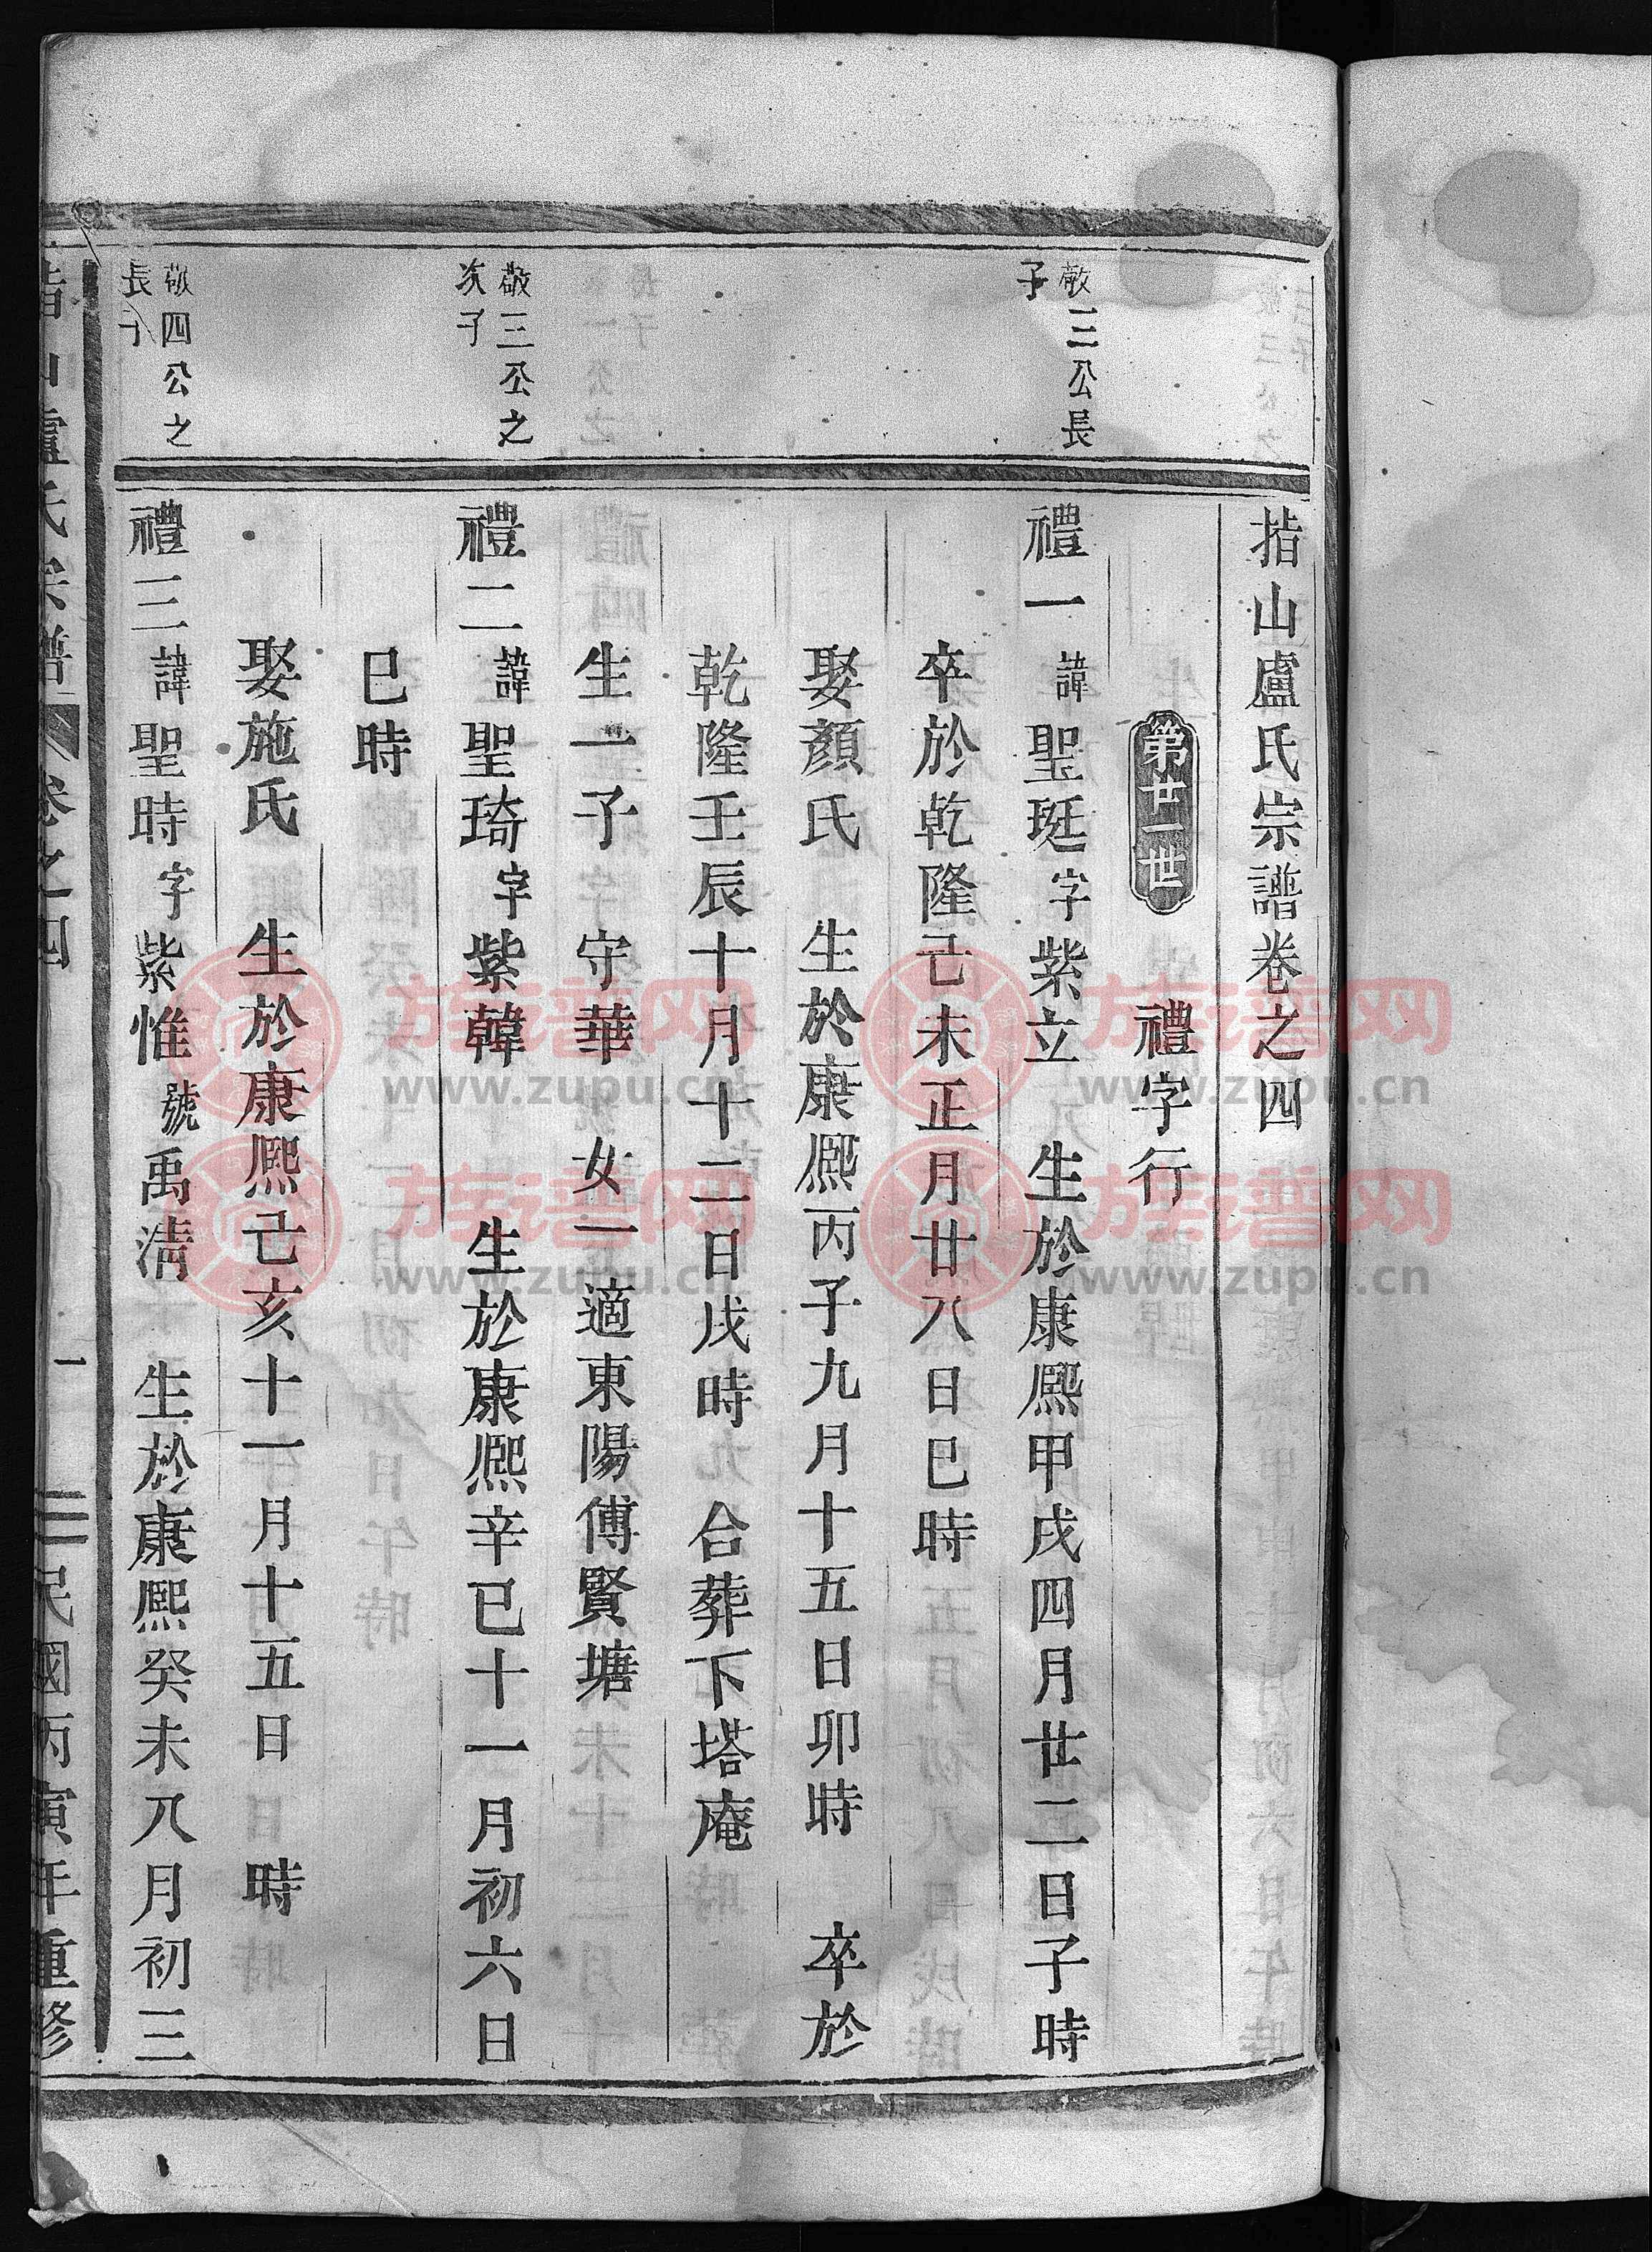 指山盧氏宗譜卷之四
第廿一世 禮字行
敬三公長子
禮一諱聖珽字紫立 生於康熙甲戌四月廿二日子時
卒於乾隆己未正月廿八日巳時
娶顏氏 生於康熙丙子九月十五日卯時 卒於
乾隆壬辰十月十二日戌時 合葬下塔庵
生一子 守華 女一適東陽傅賢塘
敬三公之次子
禮二諱聖琦字紫韓 生於康熙辛巳十一月初六日
巳時
娶施氏 生於康熙己亥十一月十五日 時
敬四公之長子
禮三諱聖時字紫惟號禹清 生於康熙癸未八月初三
指山盧氏宗譜 卷之四 一 民國丙寅年重修
族譜网
www.zupu.cn
族譜网
www.zupu.cn
族譜网
www.zupu.cn
族譜网
www.zupu.cn